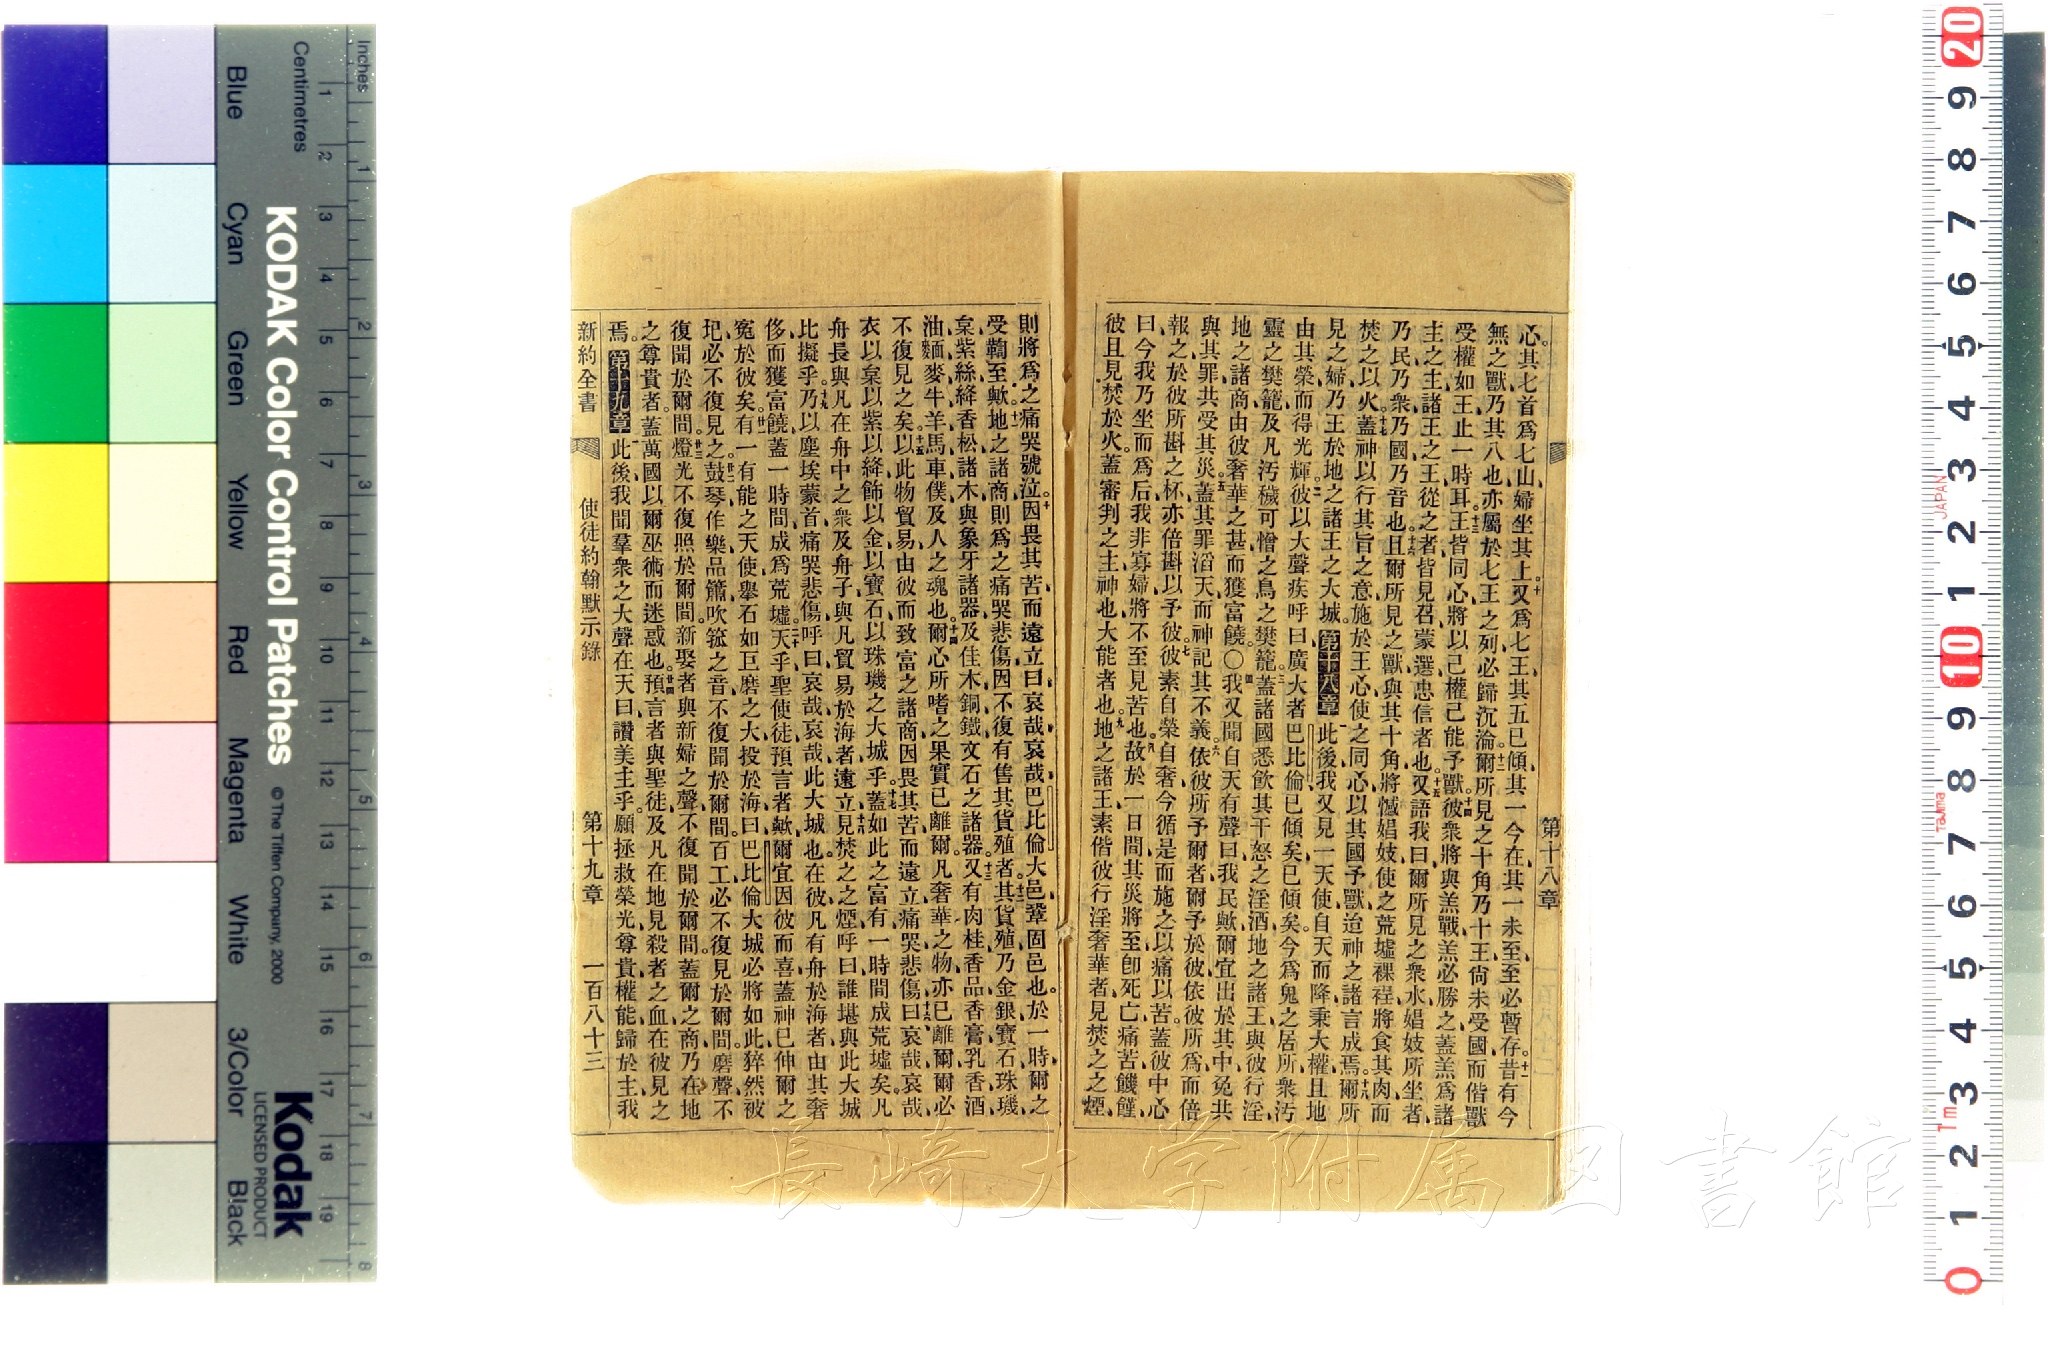 心其七首爲七山婦坐其上十又爲七王其五已傾其一今在其一未至至必暫存十一昔有今
無之獸乃其八也亦屬於七王之列必歸沉淪十二爾所見之十角乃十王尙未受國而偕獸
受權如王止一時耳十三王皆同心將以己權己能予獸十四彼衆將與羔戰羔必勝之蓋羔爲諸
主之主諸王之王從之者皆見召蒙選忠信者也十五又語我曰爾所見之衆水娼妓所坐者
乃民乃衆乃國乃音也十六且爾所見之獸與其十角將憾娼妓使之荒墟裸裎將食其肉而
焚之以火十七蓋神以行其旨之意施於王心使之同心以其國予獸迨神之諸言成焉十八爾所
見之婦乃王於地之諸王之大城第十八章一此後我又見一天使自天而降秉大權且地
由其榮而得光輝二彼以大聲疾呼曰廣大者巴比倫已傾矣已傾矣今爲鬼之居所衆汚
靈之樊籠及凡汚穢可憎之鳥之樊籠三蓋諸國悉飲其干怒之淫酒地之諸王與彼行淫
地之諸商由彼奢華之甚而獲富饒〇四我又聞自天有聲曰我民歟爾宜出於其中免共
與其罪共受其災五蓋其罪滔天而神記其不義六依彼所予爾者爾予於彼依彼所爲而倍
報之於彼所斟之杯亦倍斟以予彼七彼素自榮自奢今循是而施之以痛以苦蓋彼中心
曰今我乃坐而爲后我非寡婦將不至見苦也八故於一日間其災將至卽死亡痛苦饑饉
彼且見焚於火蓋審判之主神也大能者也九地之諸王素偕彼行淫奢華者見焚之之煙
第十八章
則將爲之痛哭號泣十因畏其苦而遠立曰哀哉哀哉巴比倫大邑鞏固邑也於一時爾之
受鞫至歟十一地之諸商則爲之痛哭悲傷因不復有售其貨殖者十二其貨殖乃金銀寶石珠璣
枲紫絲絳香松諸木與象牙諸器及佳木銅鐵文石之諸器十三又有肉桂香品香膏乳香酒
油麵麥牛羊馬車僕及人之魂也十四爾心所嗜之果實已離爾凡奢華之物亦已離爾爾必
不復見之矣十五以此物貿易由彼而致富之諸商因畏其苦而遠立痛哭悲傷曰十六哀哉哀哉
衣以枲以紫以絳飾以金以寶石以珠璣之大城乎十七蓋如此之富有一時間成荒墟矣凡
舟長與凡在舟中之衆及舟子與凡貿易於海者遠立十八見焚之之煙呼曰誰堪與此大城
比擬乎十九乃以塵埃蒙首痛哭悲傷呼曰哀哉哀哉此大城也在彼凡有舟於海者由其奢
侈而獲富饒蓋一時間成爲荒墟二十天乎聖使徒預言者歟爾宜因彼而喜蓋神已伸爾之
冤於彼矣廿一有一有能之天使舉石如巨磨之大投於海曰巴比倫大城必將如此猝然被
圮必不復見廿二之鼓琴作樂品簫吹箛之音不復聞於爾間百工必不復見於爾間磨聲不
復聞於爾間廿三燈光不復照於爾間新娶者與新婦之聲不復聞於爾間蓋爾之商乃在地
之尊貴者蓋萬國以爾巫術而迷惑也廿四預言者與聖徒及凡在地見殺者之血在彼見之
焉第十九章一此後我聞羣衆之大聲在天曰讚美主乎願拯救榮光尊貴權能歸於主我
新約全書 使徒約翰默示錄 第十九章 一百八十三
長崎大学附属図書館
Inches
Centimetres
KODAK Color Control Patches
© The Tiffen Company, 2000
Kodak
LICENSED PRODUCT
Blue
Cyan
Green
Yellow
Red
Magenta
White
3/Color
Black
JAPAN
Tajima
Tm